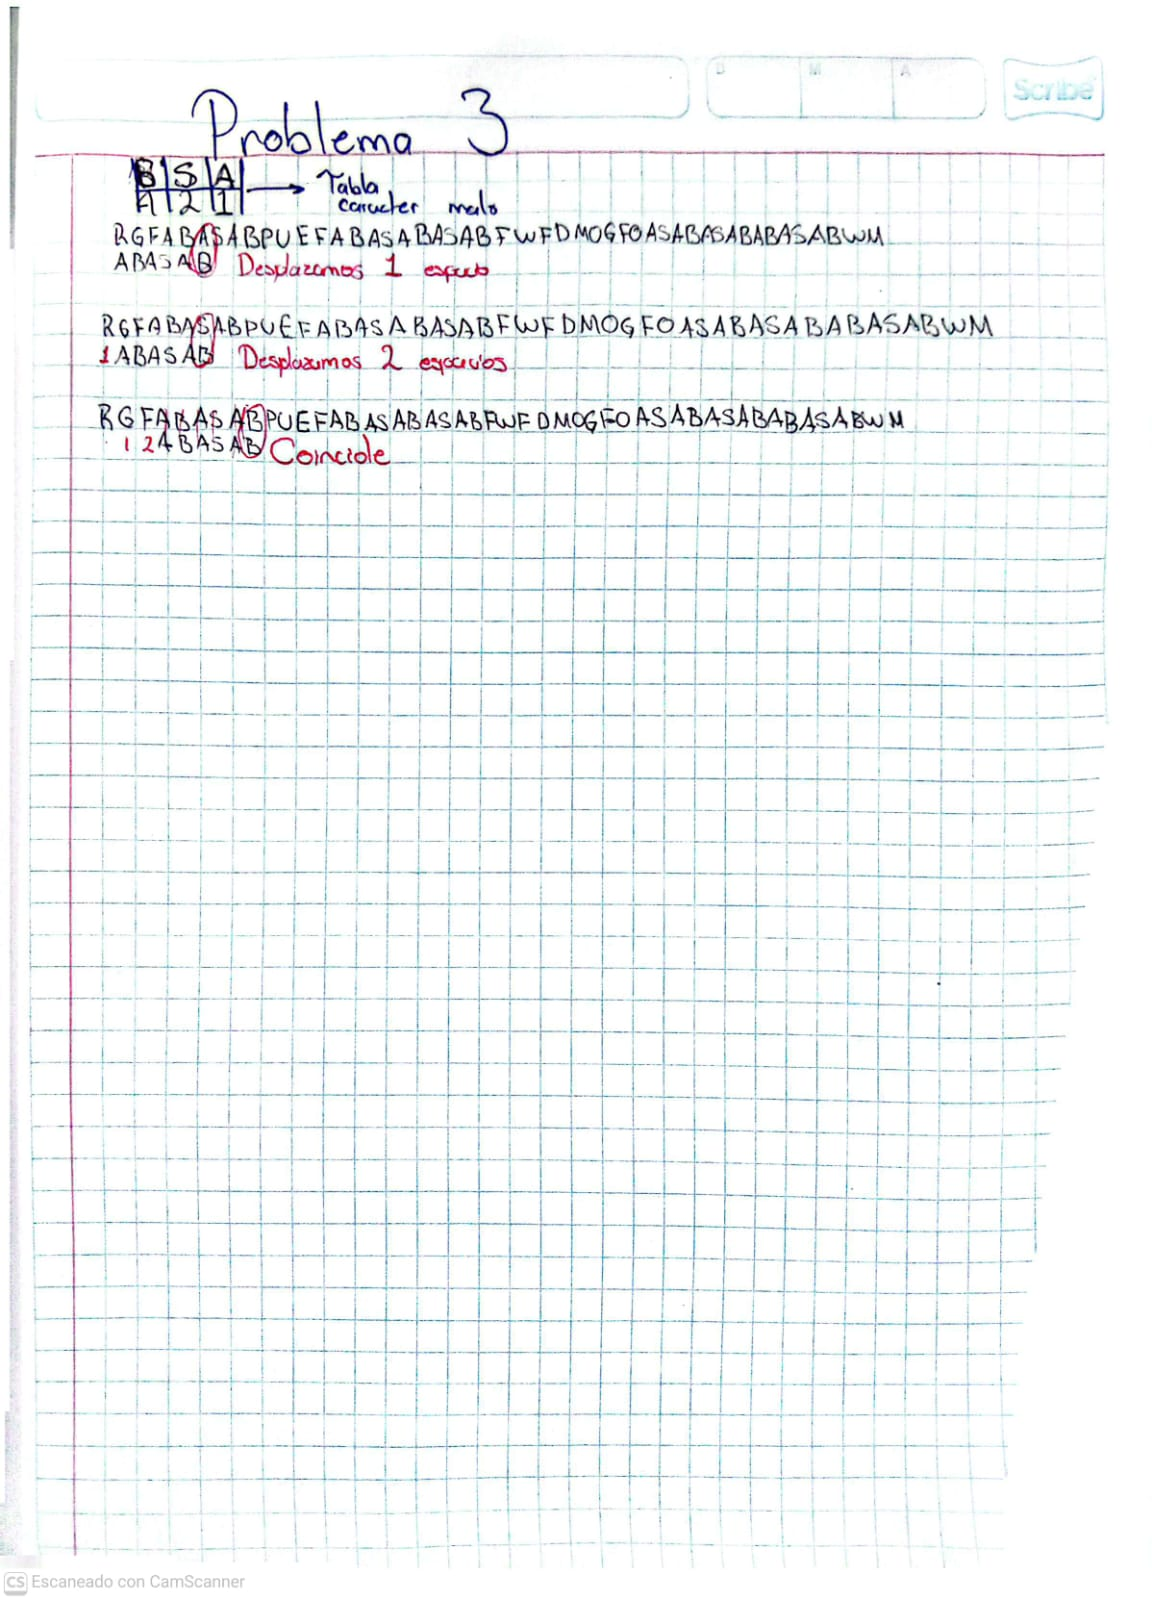 D M A
Scribe
Problema 3
B S A
4 2 1
Tabla
caracter malo
RGFABASABPUEFABASABASABFWFDMOGFOASABASABABASABWM
ABASAB Desplazamos 1 espacio
RGFABASABPUEFABASABASABFWFDMOGFOASABASABABASABWM
1ABASAB Desplazamos 2 espacios
RGFABASABPUEFABASABASABFWFDMOGFOASABASABABASABWM
12ABASAB Coincide
CS Escaneado con CamScanner